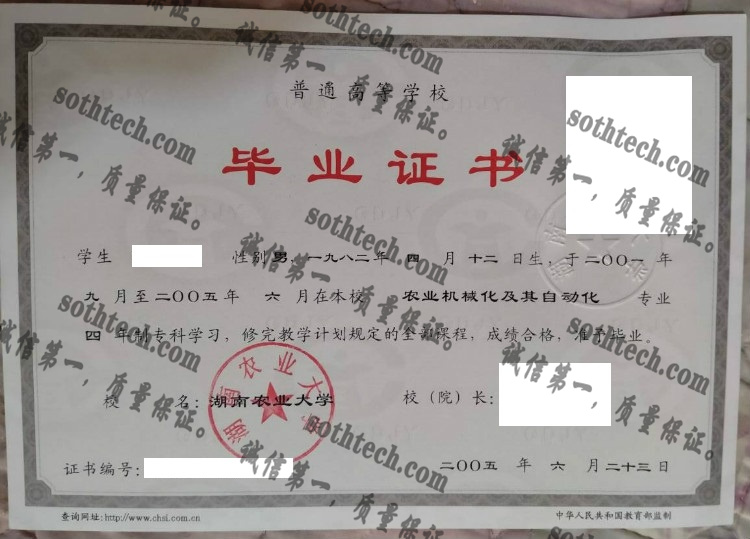 普通高等学校
毕业证书
学生 性别男，一九八二年 四 月 十二 日生，于二〇〇一 年
九 月至二〇〇五年 六 月在本校 农业机械化及其自动化 专业
四 年制专科学习，修完教学计划规定的全部课程，成绩合格，准予毕业。
校 名：湖南农业大学 校（院）长：
湖南农业大学
证书编号： 二〇〇五 年 六 月二十三日
查询网址：http://www.chsi.com.cn 中华人民共和国教育部监制
sothtech.com
诚信第一，质量保证。
sothtech.com
诚信第一，质量保证。
sothtech.com
诚信第一，质量保证。
sothtech.com
诚信第一，质量保证。
sothtech.com
诚信第一，质量保证。
sothtech.com
诚信第一，质量保证。
sothtech.com
诚信第一，质量保证。
sothtech.com
诚信第一，质量保证。